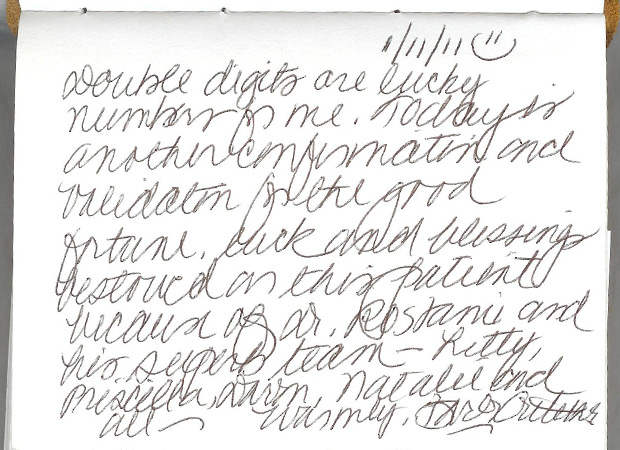 1/11/11
Double digits are lucky
numbers for me. Today is
another confirmation and
validation for the good
fortune, luck and blessings
bestowed on this patient
because of Dr. Rostami and
his superb team - Letty,
Priscilla, Dawn, Natalie and
all - Warmly,